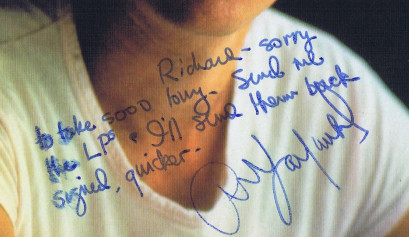 Richard - sorry
to take sooo long. Send me
the LPs & I'll send them back
signed, quicker.
Art Garfunkel